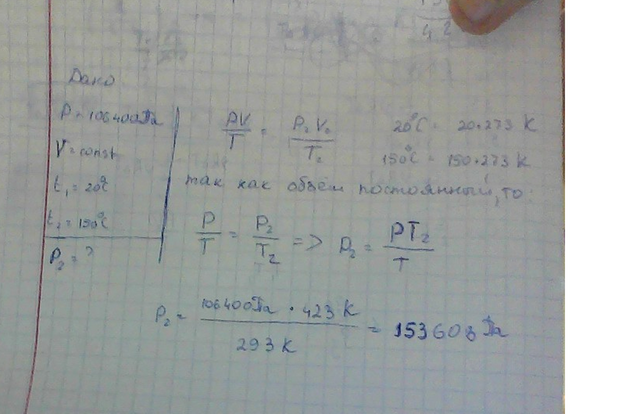 Дано
P = 106400 Па
V = const
t₁ = 20°C
t₁ = 150°C
P₂ = ?
PV/T = P₂V₂/T₂
20°C = 20+273 K
150°C = 150+273 K
так как объём постоянный, то:
P/T = P₂/T₂ => P₂ = PT₂/T
P₂ = 106400 Па · 423 K / 293 K = 153608 Па